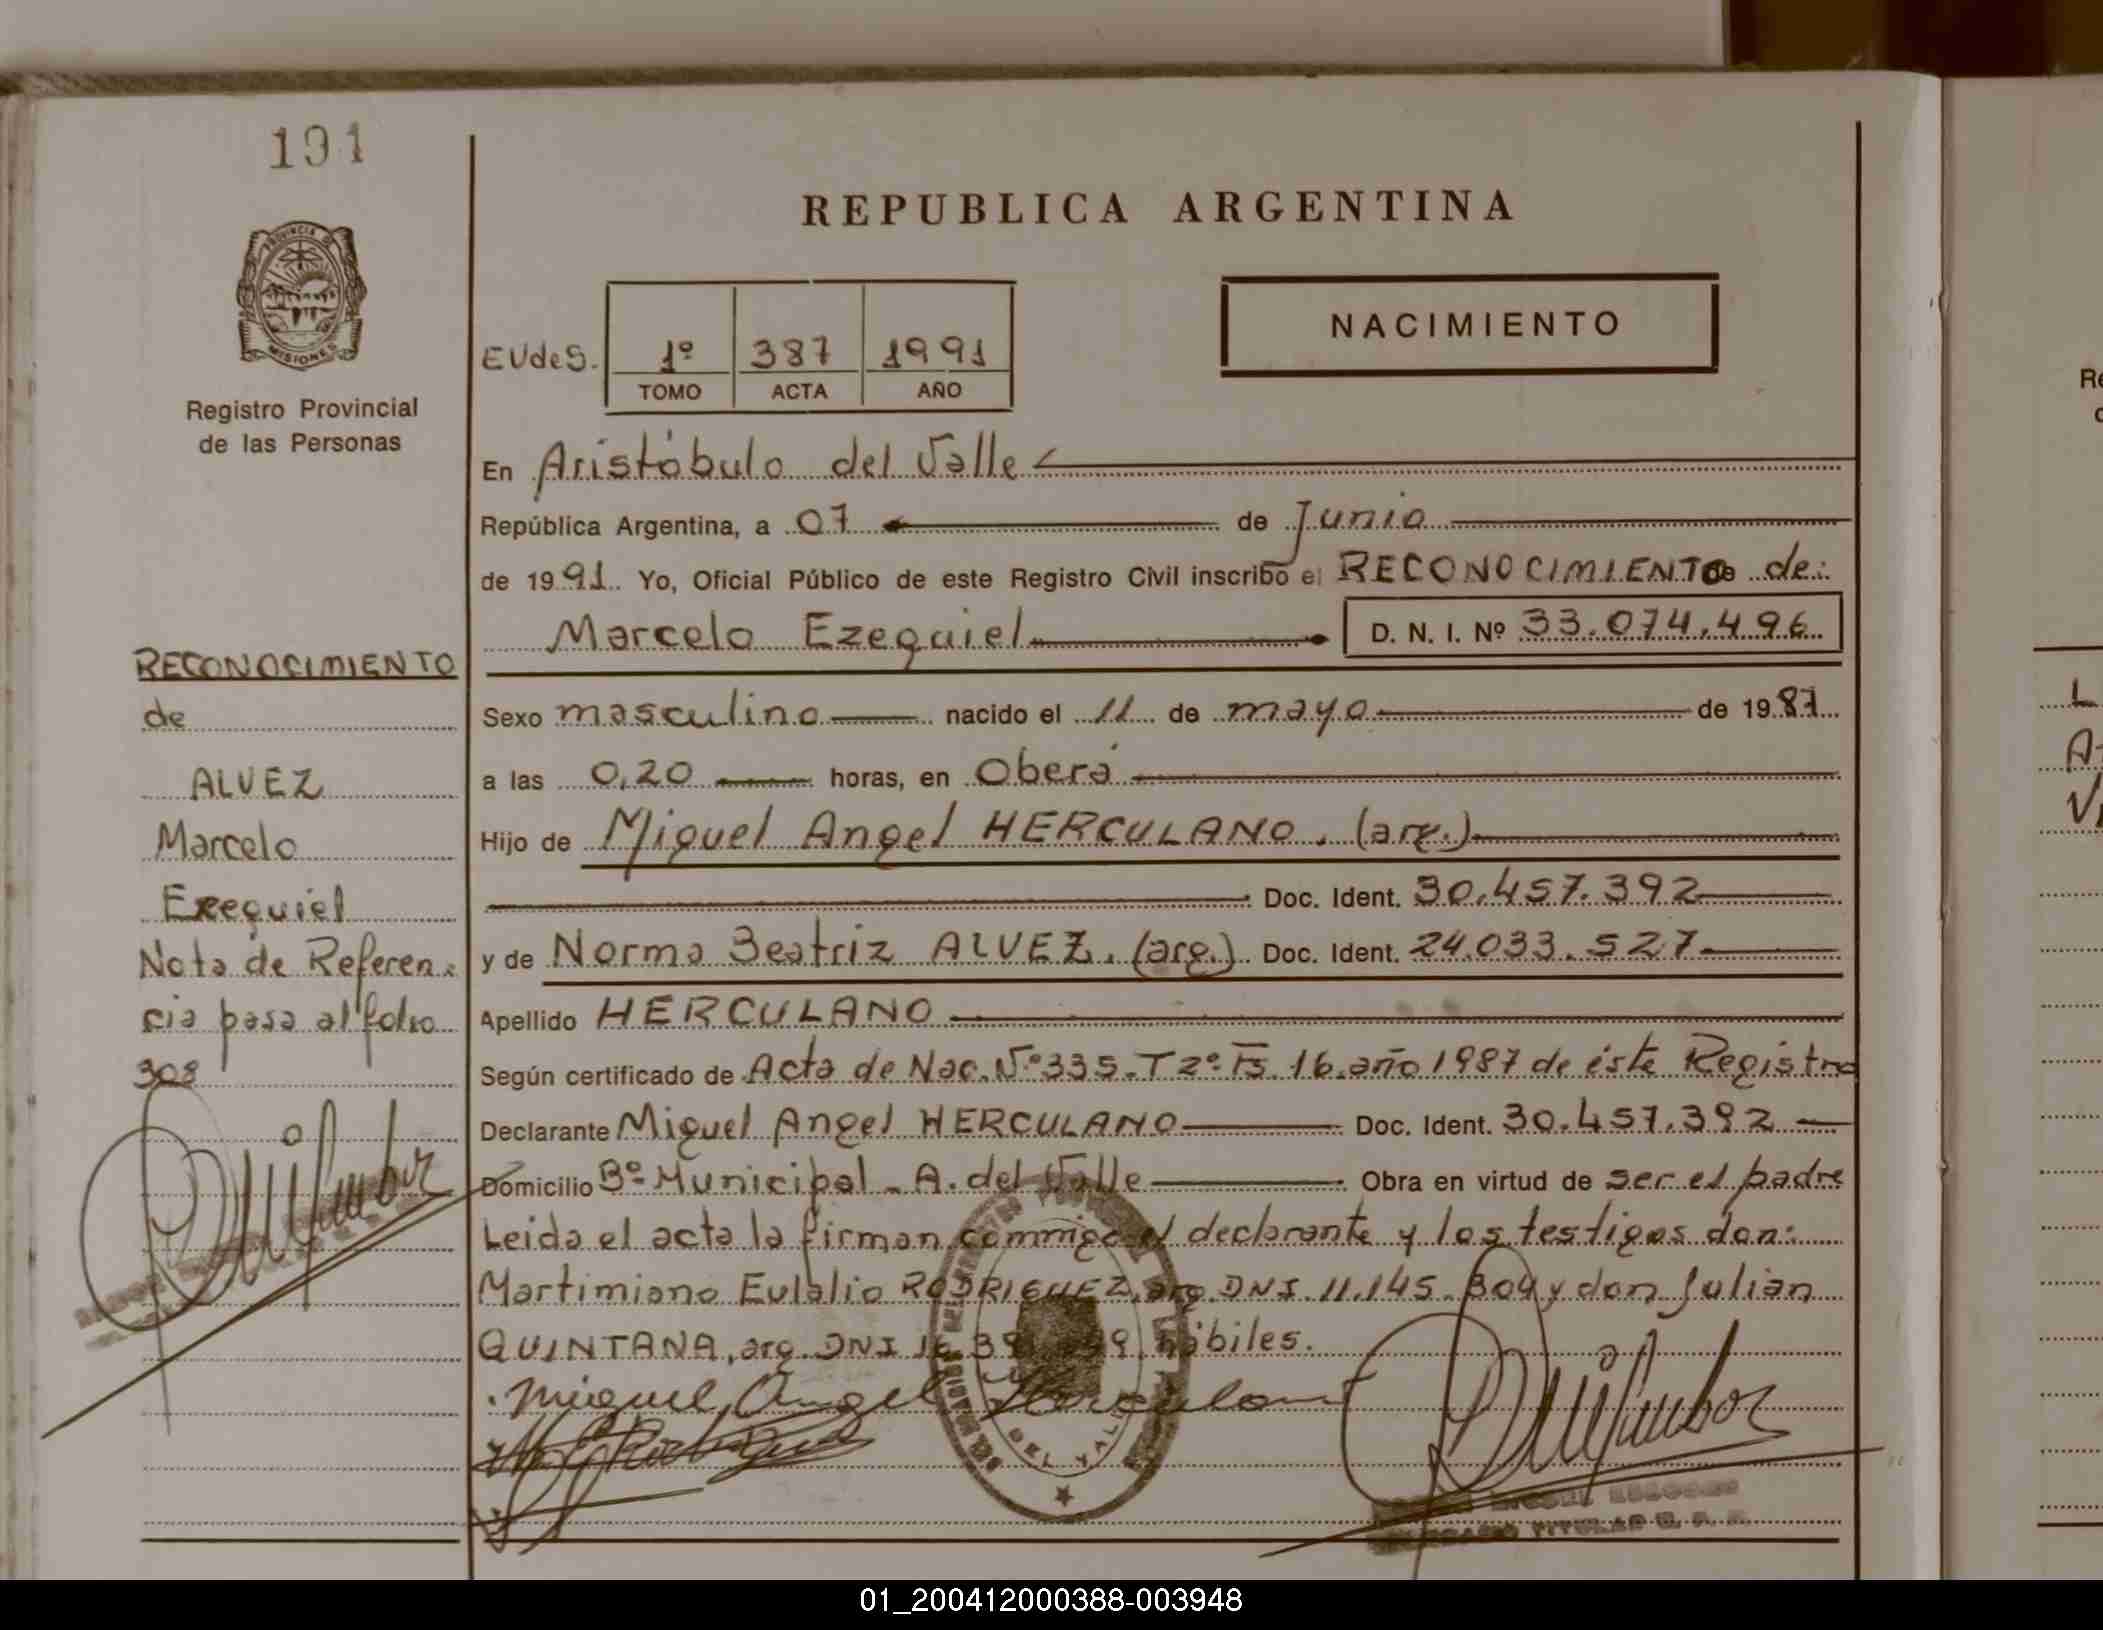 191
REPUBLICA ARGENTINA
PROVINCIA DE
MISIONES
Registro Provincial
de las Personas
EUdeS.
1º 387 1991
TOMO ACTA AÑO
NACIMIENTO
En Aristóbulo del Valle
República Argentina, a 07 de Junio
de 1991. Yo, Oficial Público de este Registro Civil inscribo el RECONOCIMIENTO de:
Marcelo Ezequiel D. N. I. Nº 33.074.496
Sexo masculino nacido el 11 de mayo de 1987
a las 0,20 horas, en Oberá
Hijo de Miguel Angel HERCULANO. (arg.)
Doc. Ident. 30.457.392
y de Norma Beatriz ALVEZ. (arg.) Doc. Ident. 24.033.527
Apellido HERCULANO
Según certificado de Acta de Nac. Nº 335. T 2º. Fs. 16. año 1987 de éste Registro
Declarante Miguel Angel HERCULANO Doc. Ident. 30.457.392
Domicilio Bº Municipal - A. del Valle Obra en virtud de ser el padre
Leida el acta la firman conmigo el declarante y los testigos don:
Martimiano Eulalio RODRIGUEZ, arg. DNI. 11.145. y don Julian
QUINTANA, arg. DNI hábiles.
Miguel Angel Herculano
DEL VALLE
RECONOCIMIENTO
de
ALVEZ
Marcelo
Ezequiel
Nota de Referen.
cia pasa al folio
308
Re
L
01_200412000388-003948